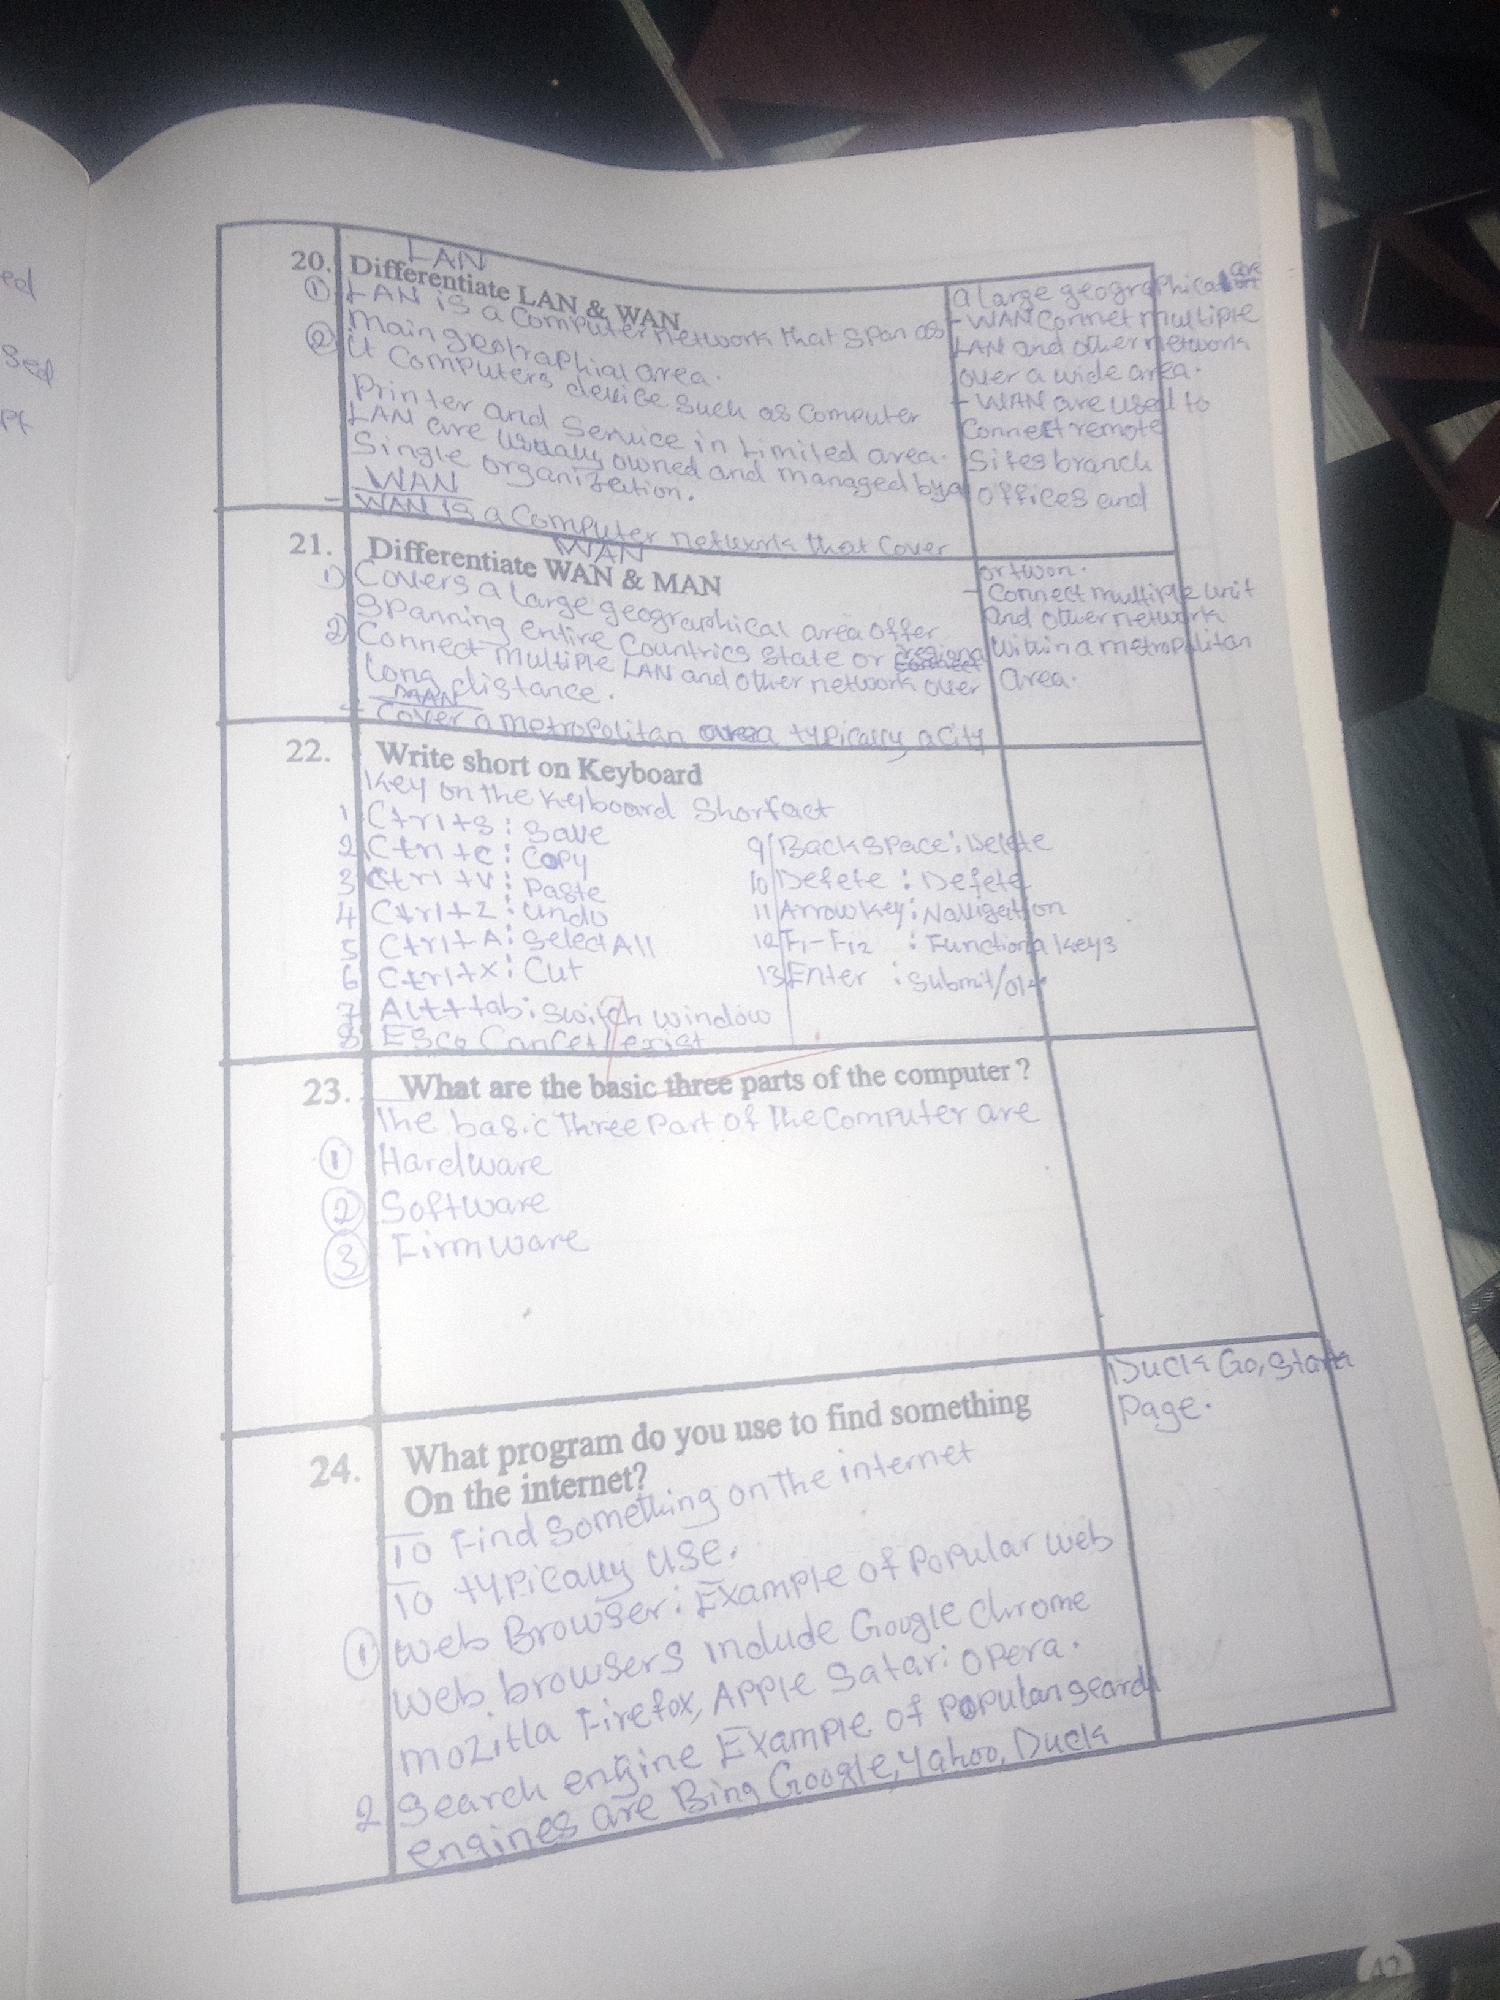 ed
sed
pt
LAN
20. Differentiate LAN & WAN
① LAN is a Computer network that span as
Main geotraphial area.
② it Computers device such as Computer
Printer and Service in Limited area.
LAN are usually owned and managed by a
Single organization.
WAN
- WAN is a Computer network that Cover
a large geographical are
- WAN Connet multiple
LAN and other network
over a wide area.
- WAN are used to
Connect remote
Sites branch
offices and
21. Differentiate WAN & MAN
WAN
1) Covers a large geographical area offer
Spanning entire Countries State or regiona
2) Connect multiple LAN and other network over
Long distance.
MAN
- Cover a metropolitan area typically a city
or twon.
- Connect multiple unit
and other network
Within a metropolitan
area.
22. Write short on Keyboard
Key on the keyboard Shorfact
1 Ctrl+s: Save
2 Ctrl+c: Copy
3 Ctrl+v: Paste
4 Ctrl+z: undo
5 Ctrl+A: Select All
6 Ctrl+x: Cut
7 Alt+tab: Switch window
8 Esco Cancel/exist
9 BackSpace: Delete
10 Defete: Defete
11 Arrow Key: Navigation
12 F1-F12: Functiona Keys
13 Enter: Submit/
23. What are the basic three parts of the computer ?
The basic three Part of the Computer are
① Hardware
② Software
③ Firmware
24. What program do you use to find something
On the internet?
To Find Something on the internet
To typically use.
① Web Browser: Example of Popular web
web browsers include Google chrome
mozitla Firefox, Apple Satari Opera.
2 Search engine Example of Populan search
engines are Bing Google, Yahoo, Duck
Duck Go, Start
Page.